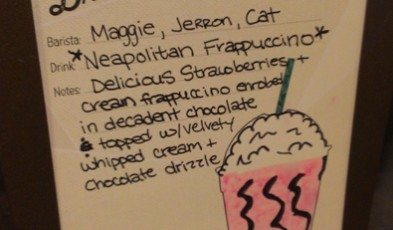 Barista: Maggie, Jerron, Cat
Drink: *Neapolitan Frappuccino*
Notes: Delicious Strawberries +
cream frappuccino enrobed
in decadent chocolate
& topped w/velvety
whipped cream +
chocolate drizzle